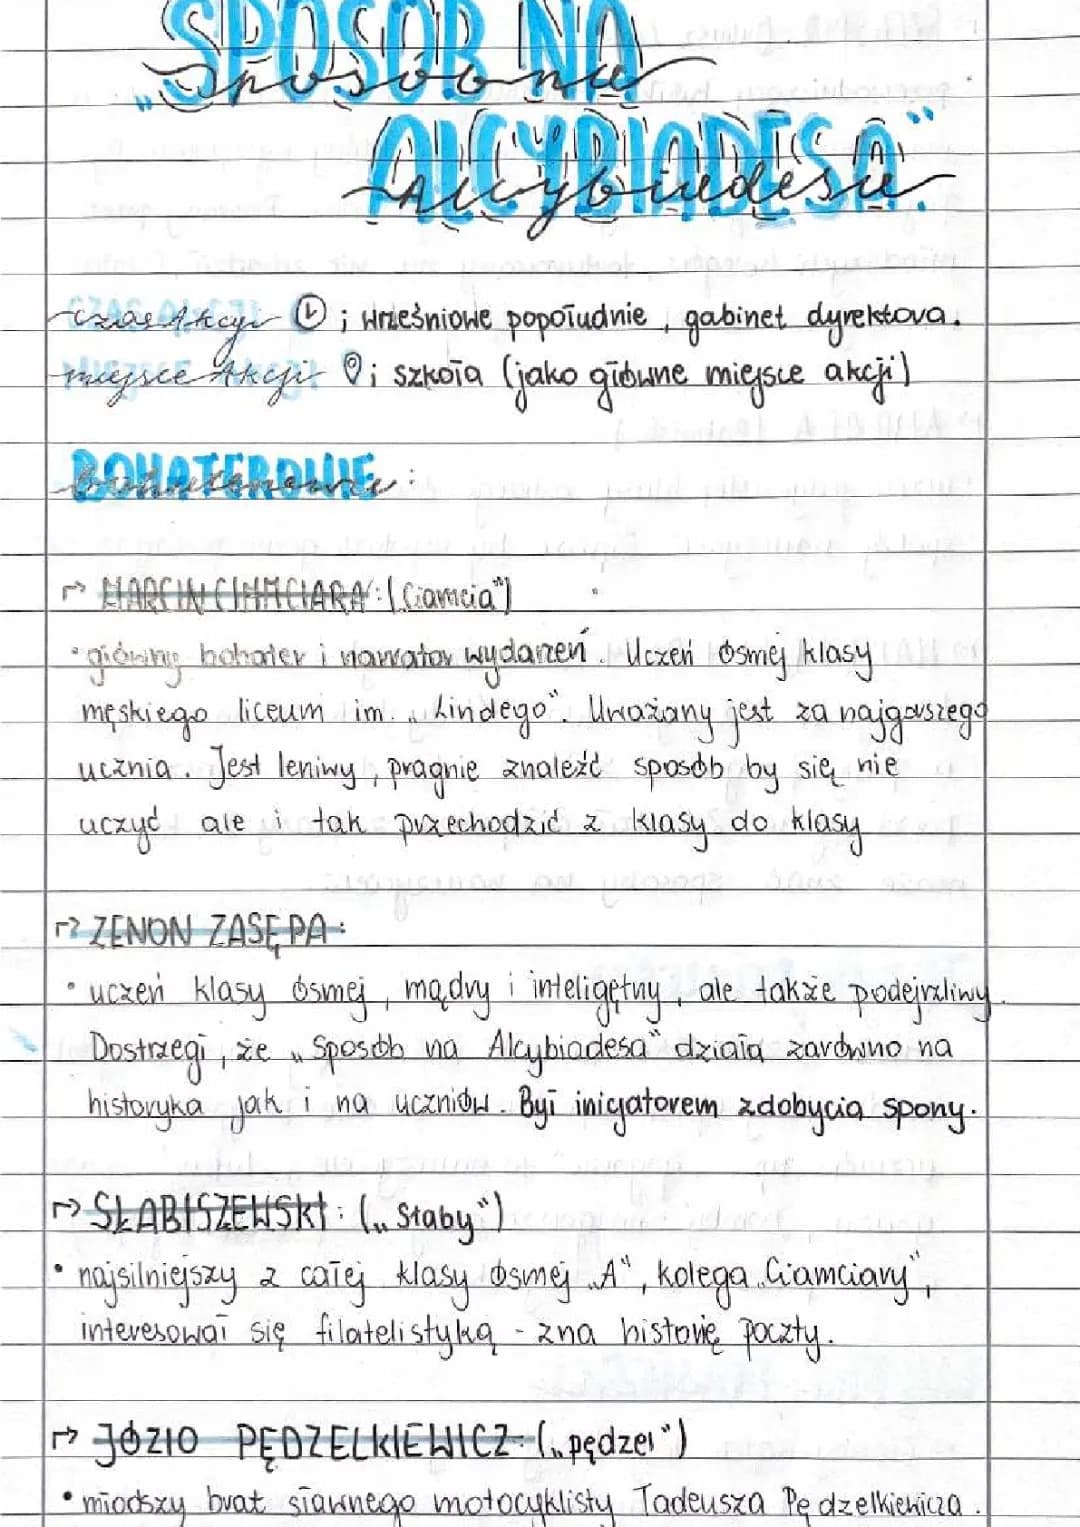 „SPOSÓB NA
Sposób na
ALCYBIADESA".
Alcybiadesa
czas Akcji ; wrześniowe popołudnie, gabinet dyrektora.
miejsce Akcji ; szkoła (jako główne miejsce akcji)
BOHATEROWIE
bohaterowie:
→ MARCIN CIAMCIARA: („Ciamcia")
• główny bohater i narrator wydarzeń. Uczeń ósmej klasy
męskiego liceum im. „Lindego". Uważany jest za najgorszego
ucznia. Jest leniwy, pragnie znaleźć sposób by się nie
uczyć ale i tak przechodzić z klasy do klasy
→ ZENON ZASĘPA:
• uczeń klasy ósmej, mądry i inteligętny, ale także podejrzliwy.
Dostrzegł, że „Sposób na Alcybiadesa" działa zarówno na
historyka jak i na uczniów. Był inicjatorem zdobycia spony.
→ SŁABISZEWSKI: („Słaby")
• najsilniejszy z całej klasy ósmej „A", kolega „Ciamciary",
interesował się filatelistyką - zna historię poczty.
→ JÓZIO PĘDZELKIEWICZ: („pędzel")
• młodszy brat sławnego motocyklisty Tadeusza Pędzelkiewicza.